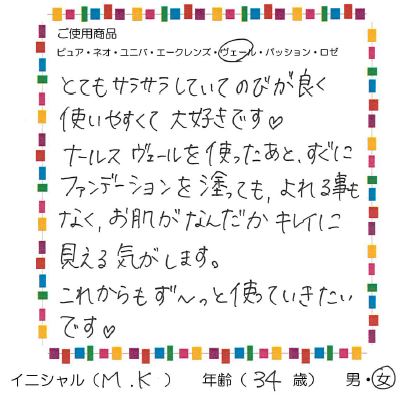 ご使用商品
ピュア・ネオ・ユニバ・エークレンズ・ヴェール・パッション・ロゼ
とてもサラサラしていてのびが良く
使いやすくて大好きです♡
ナールス ヴェールを使ったあと、すぐに
ファンデーションを塗っても、よれる事も
なく、お肌がなんだかキレイに
見える気がします。
これからもず〜っと使っていきたい
です♡
イニシャル（M.K） 年齢（34歳） 男・女